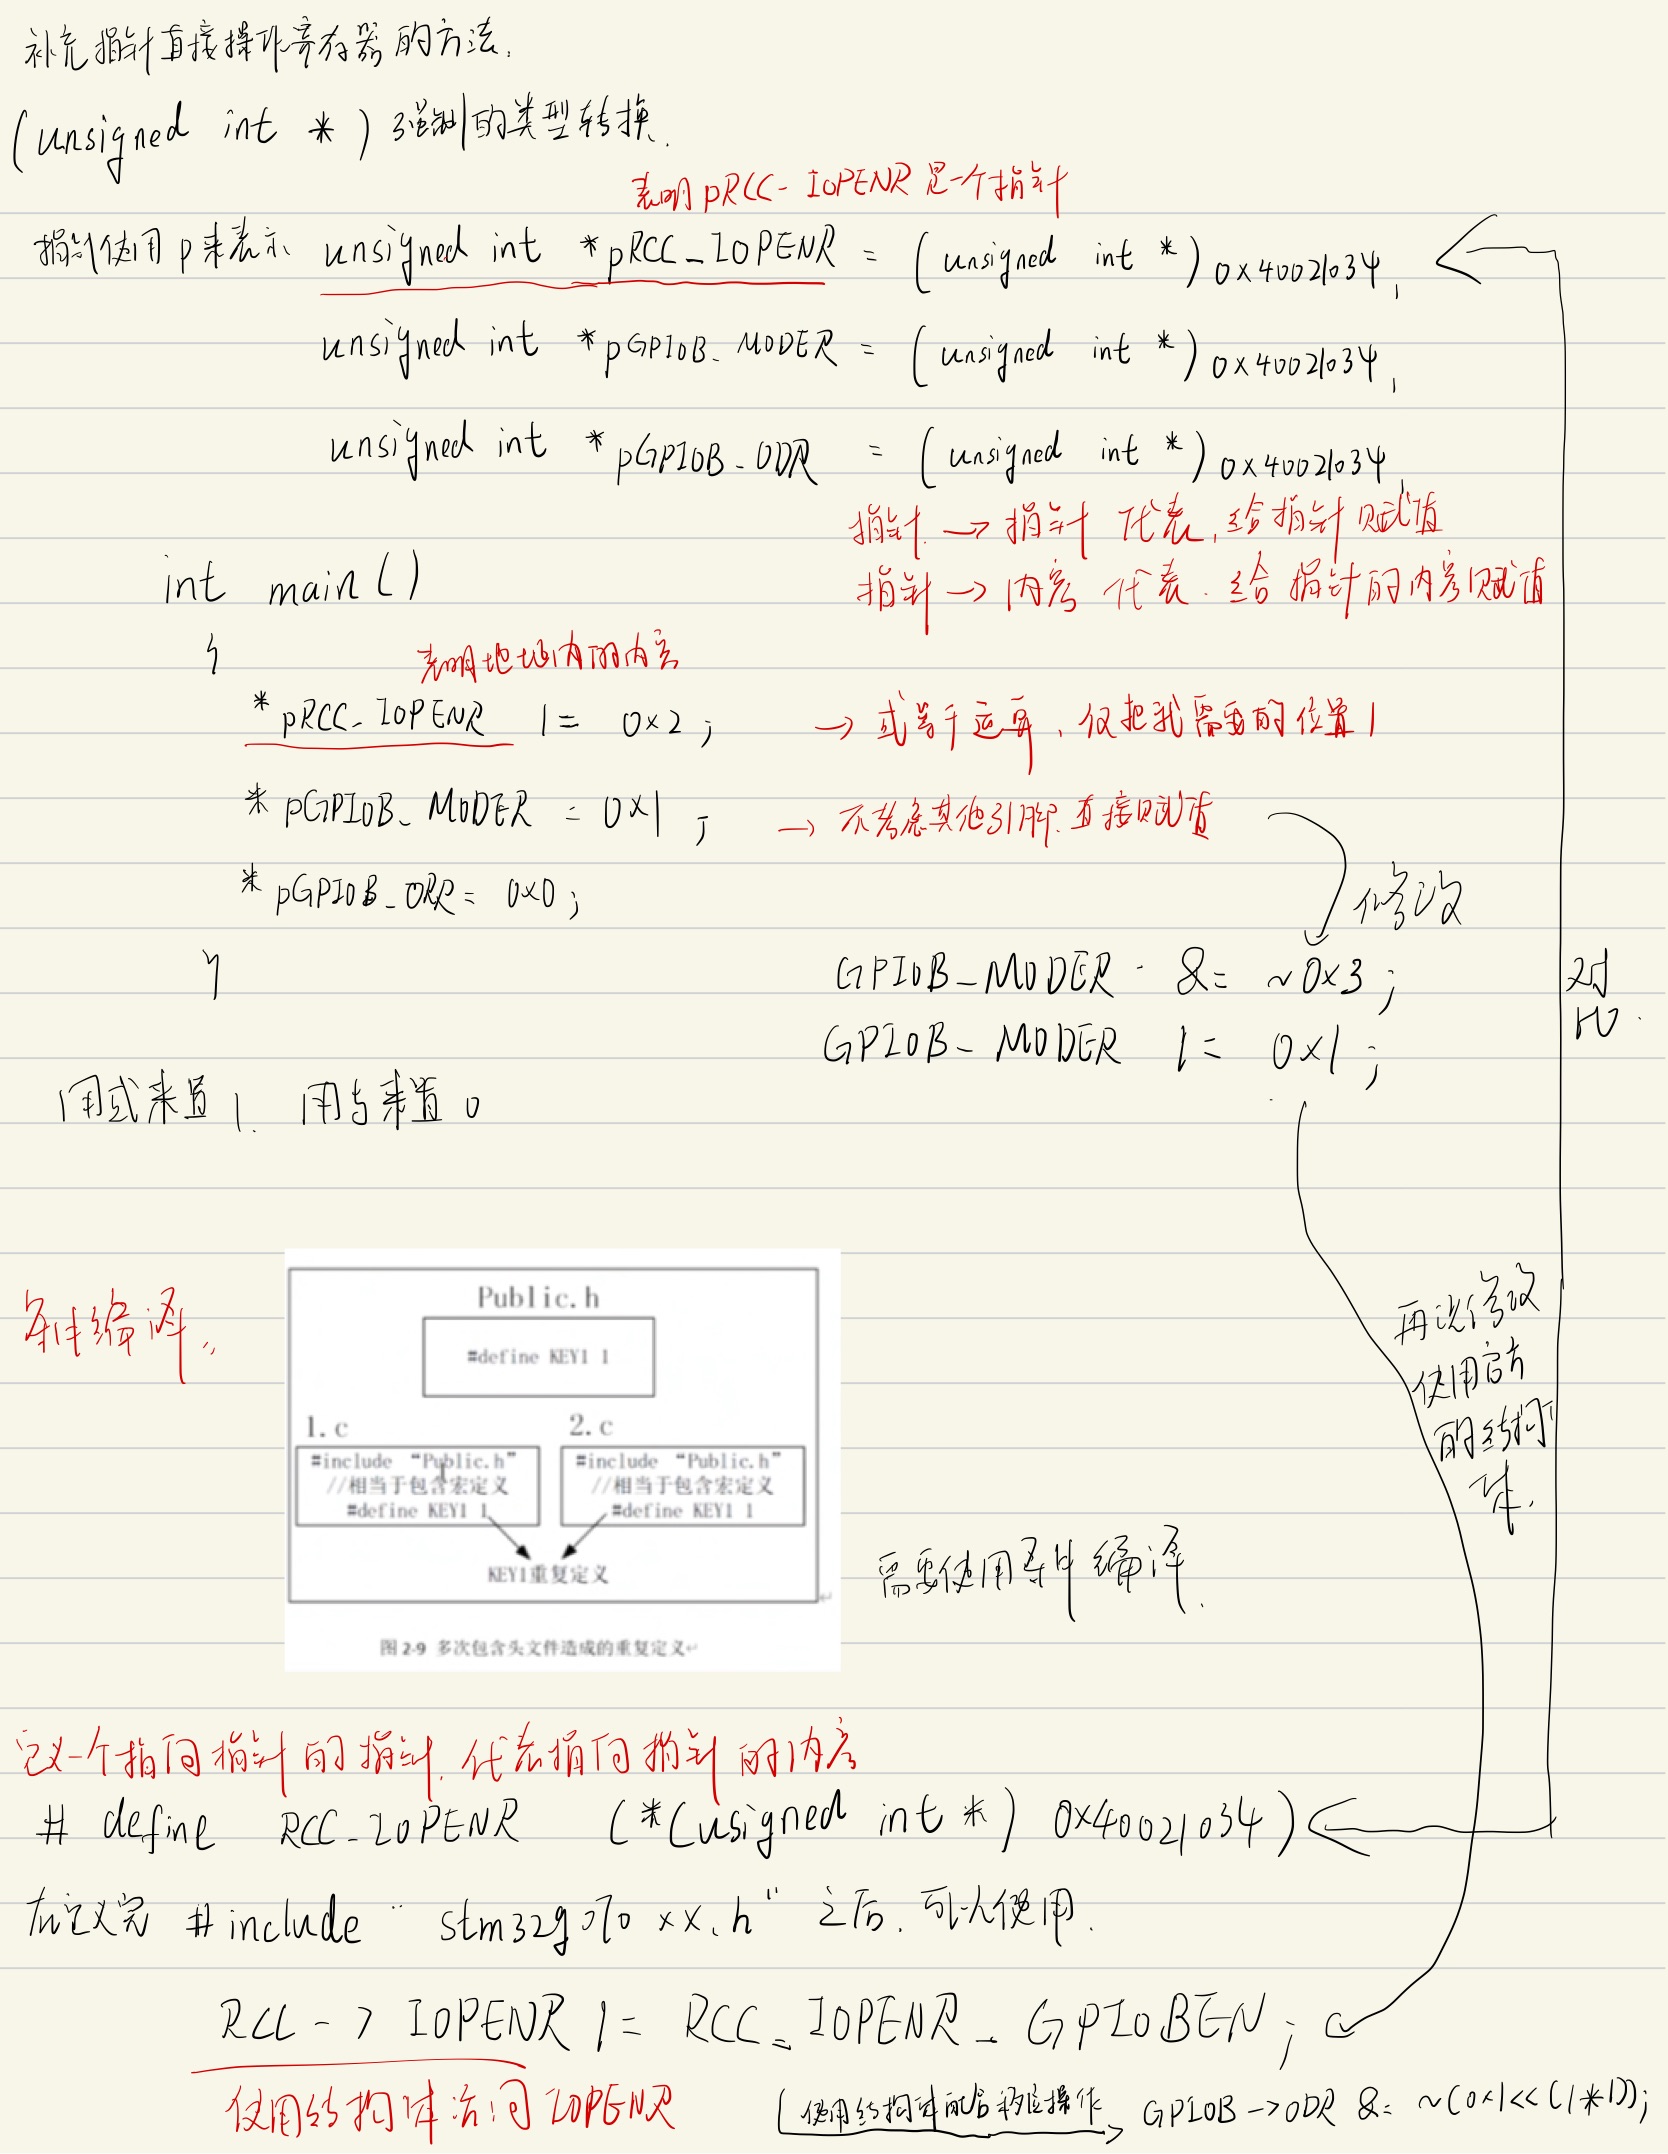 补充指针直接操作寄存器的方法.
(unsigned int *) 强制的类型转换.
表明 pRCC-IOPENR 是一个指针
指针使用 p 来表示 unsigned int *pRCC_IOPENR = (unsigned int *) 0x40021034,
unsigned int *pGPIOB_MODER = (unsigned int *) 0x40021034,
unsigned int *pGPIOB_ODR = (unsigned int *) 0x40021034,
指针 → 指针 代表,给指针赋值
指针 → 内容 代表.给指针的内容赋值
int main()
{
表明地址内的内容
*pRCC_IOPENR |= 0x2; → 或等于运算,仅把我需要的位置1
*pGPIOB_MODER = 0x1; → 不考虑其他引脚.直接赋值
*pGPIOB_ORR = 0x0;
修改
}
GPIOB_MODER &= ~0x3;
GPIOB_MODER |= 0x1;
对比.
用或来置1. 用与来置0
条件编译.
Public.h
#define KEY1 1
1.c 2.c
#include “Public.h” #include “Public.h”
//相当于包含宏定义 //相当于包含宏定义
#define KEY1 1 #define KEY1 1
KEY1重复定义
图 2-9 多次包含头文件造成的重复定义
需要使用条件编译.
再次修改
使用官方
的结构
体.
定义一个指向指针的指针.代表指向指针的内容
# define RCC_IOPENR (*(usigned int *) 0x40021034)
在定义完 #include "stm32g070xx.h" 之后.可以使用.
RCC -> IOPENR |= RCC_IOPENR_GPIOBEN;
使用结构体访问 IOPENR
使用结构体配合移位操作 → GPIOB->ODR &= ~(0x1<<(1*1));